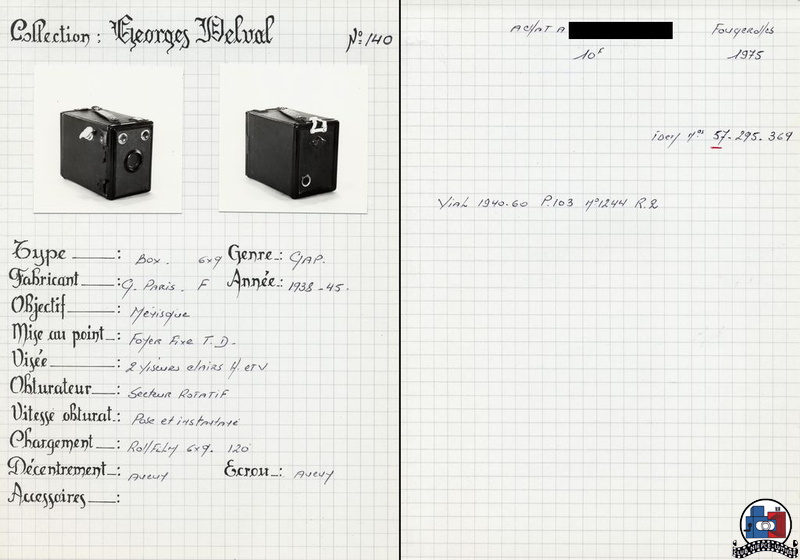 Collection : Georges Delval
Nº 140
Type : Box. 6x9 Genre : GAP.
Fabricant : G. Paris. F Année : 1938-45.
Objectif : Ménisque
Mise au point : Foyer Fixe T.D.
Visée : 2 Viseurs clairs H. et V
Obturateur : Secteur Rotatif
Vitesse obturat. : Pose et instantané
Chargement : RollFilm 6x9. 120
Décentrement : Aucun Ecrou : Aucun
Accessoires :
ACHAT A Fougerolles
10F 1975
idem nos 57-295-369
Vial 1940-60 P.103 nº1244 R.2